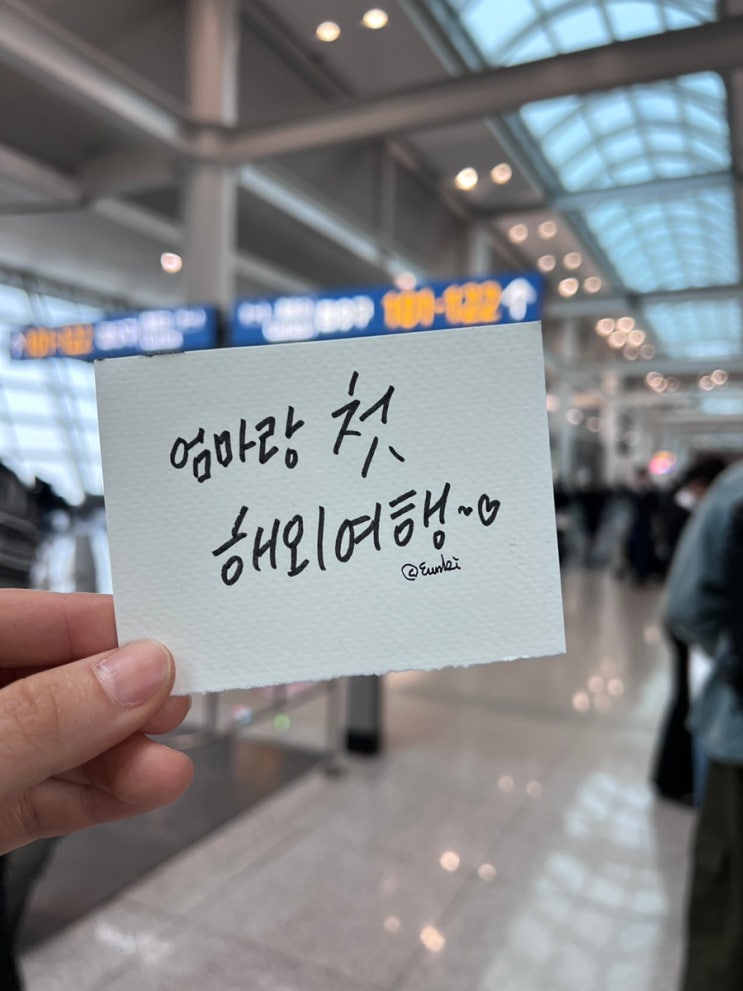 101-122
101-122 ↑
엄마랑 첫
해외여행~♡
ⓒEunbi